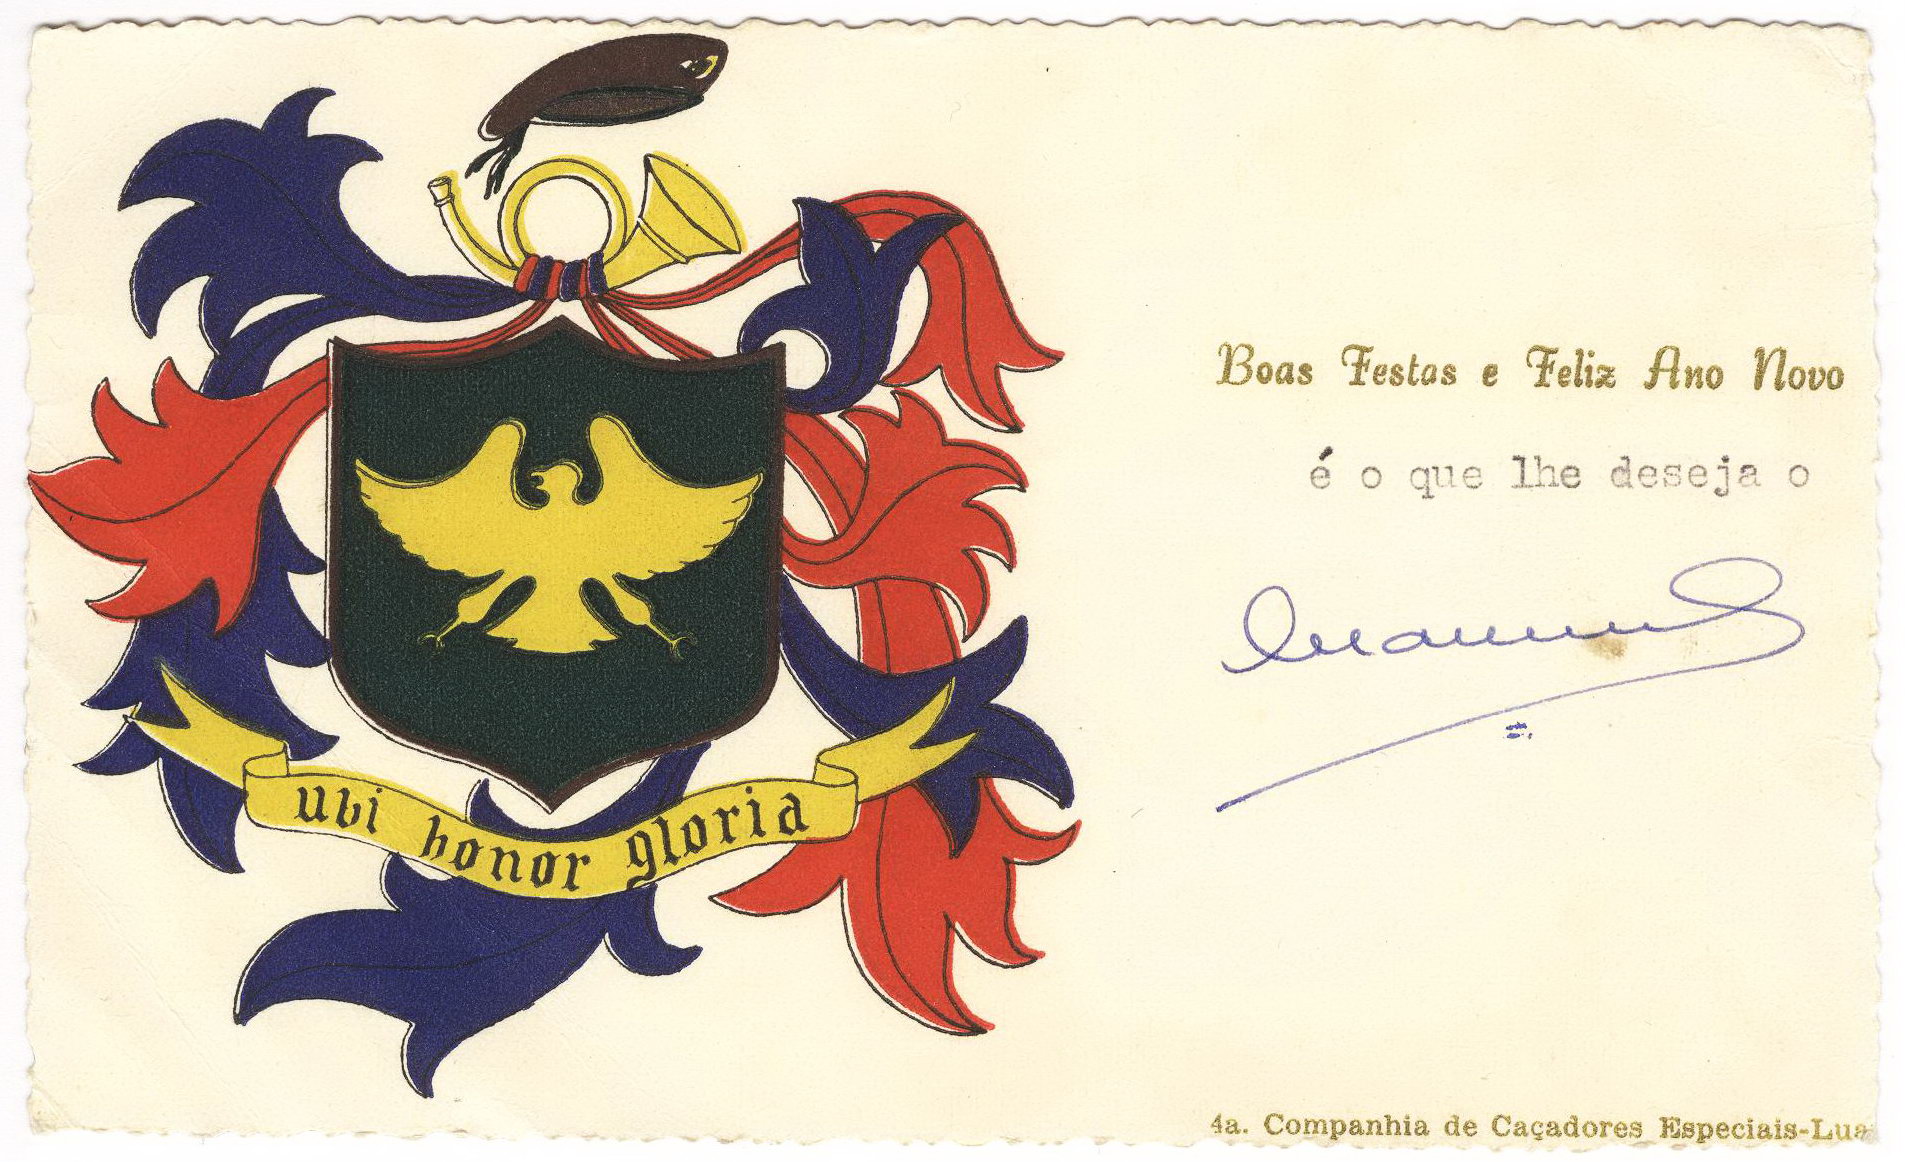 ubi honor gloria
Boas Festas e Feliz Ano Novo
é o que lhe deseja o
4a. Companhia de Caçadores Especiais-Lua